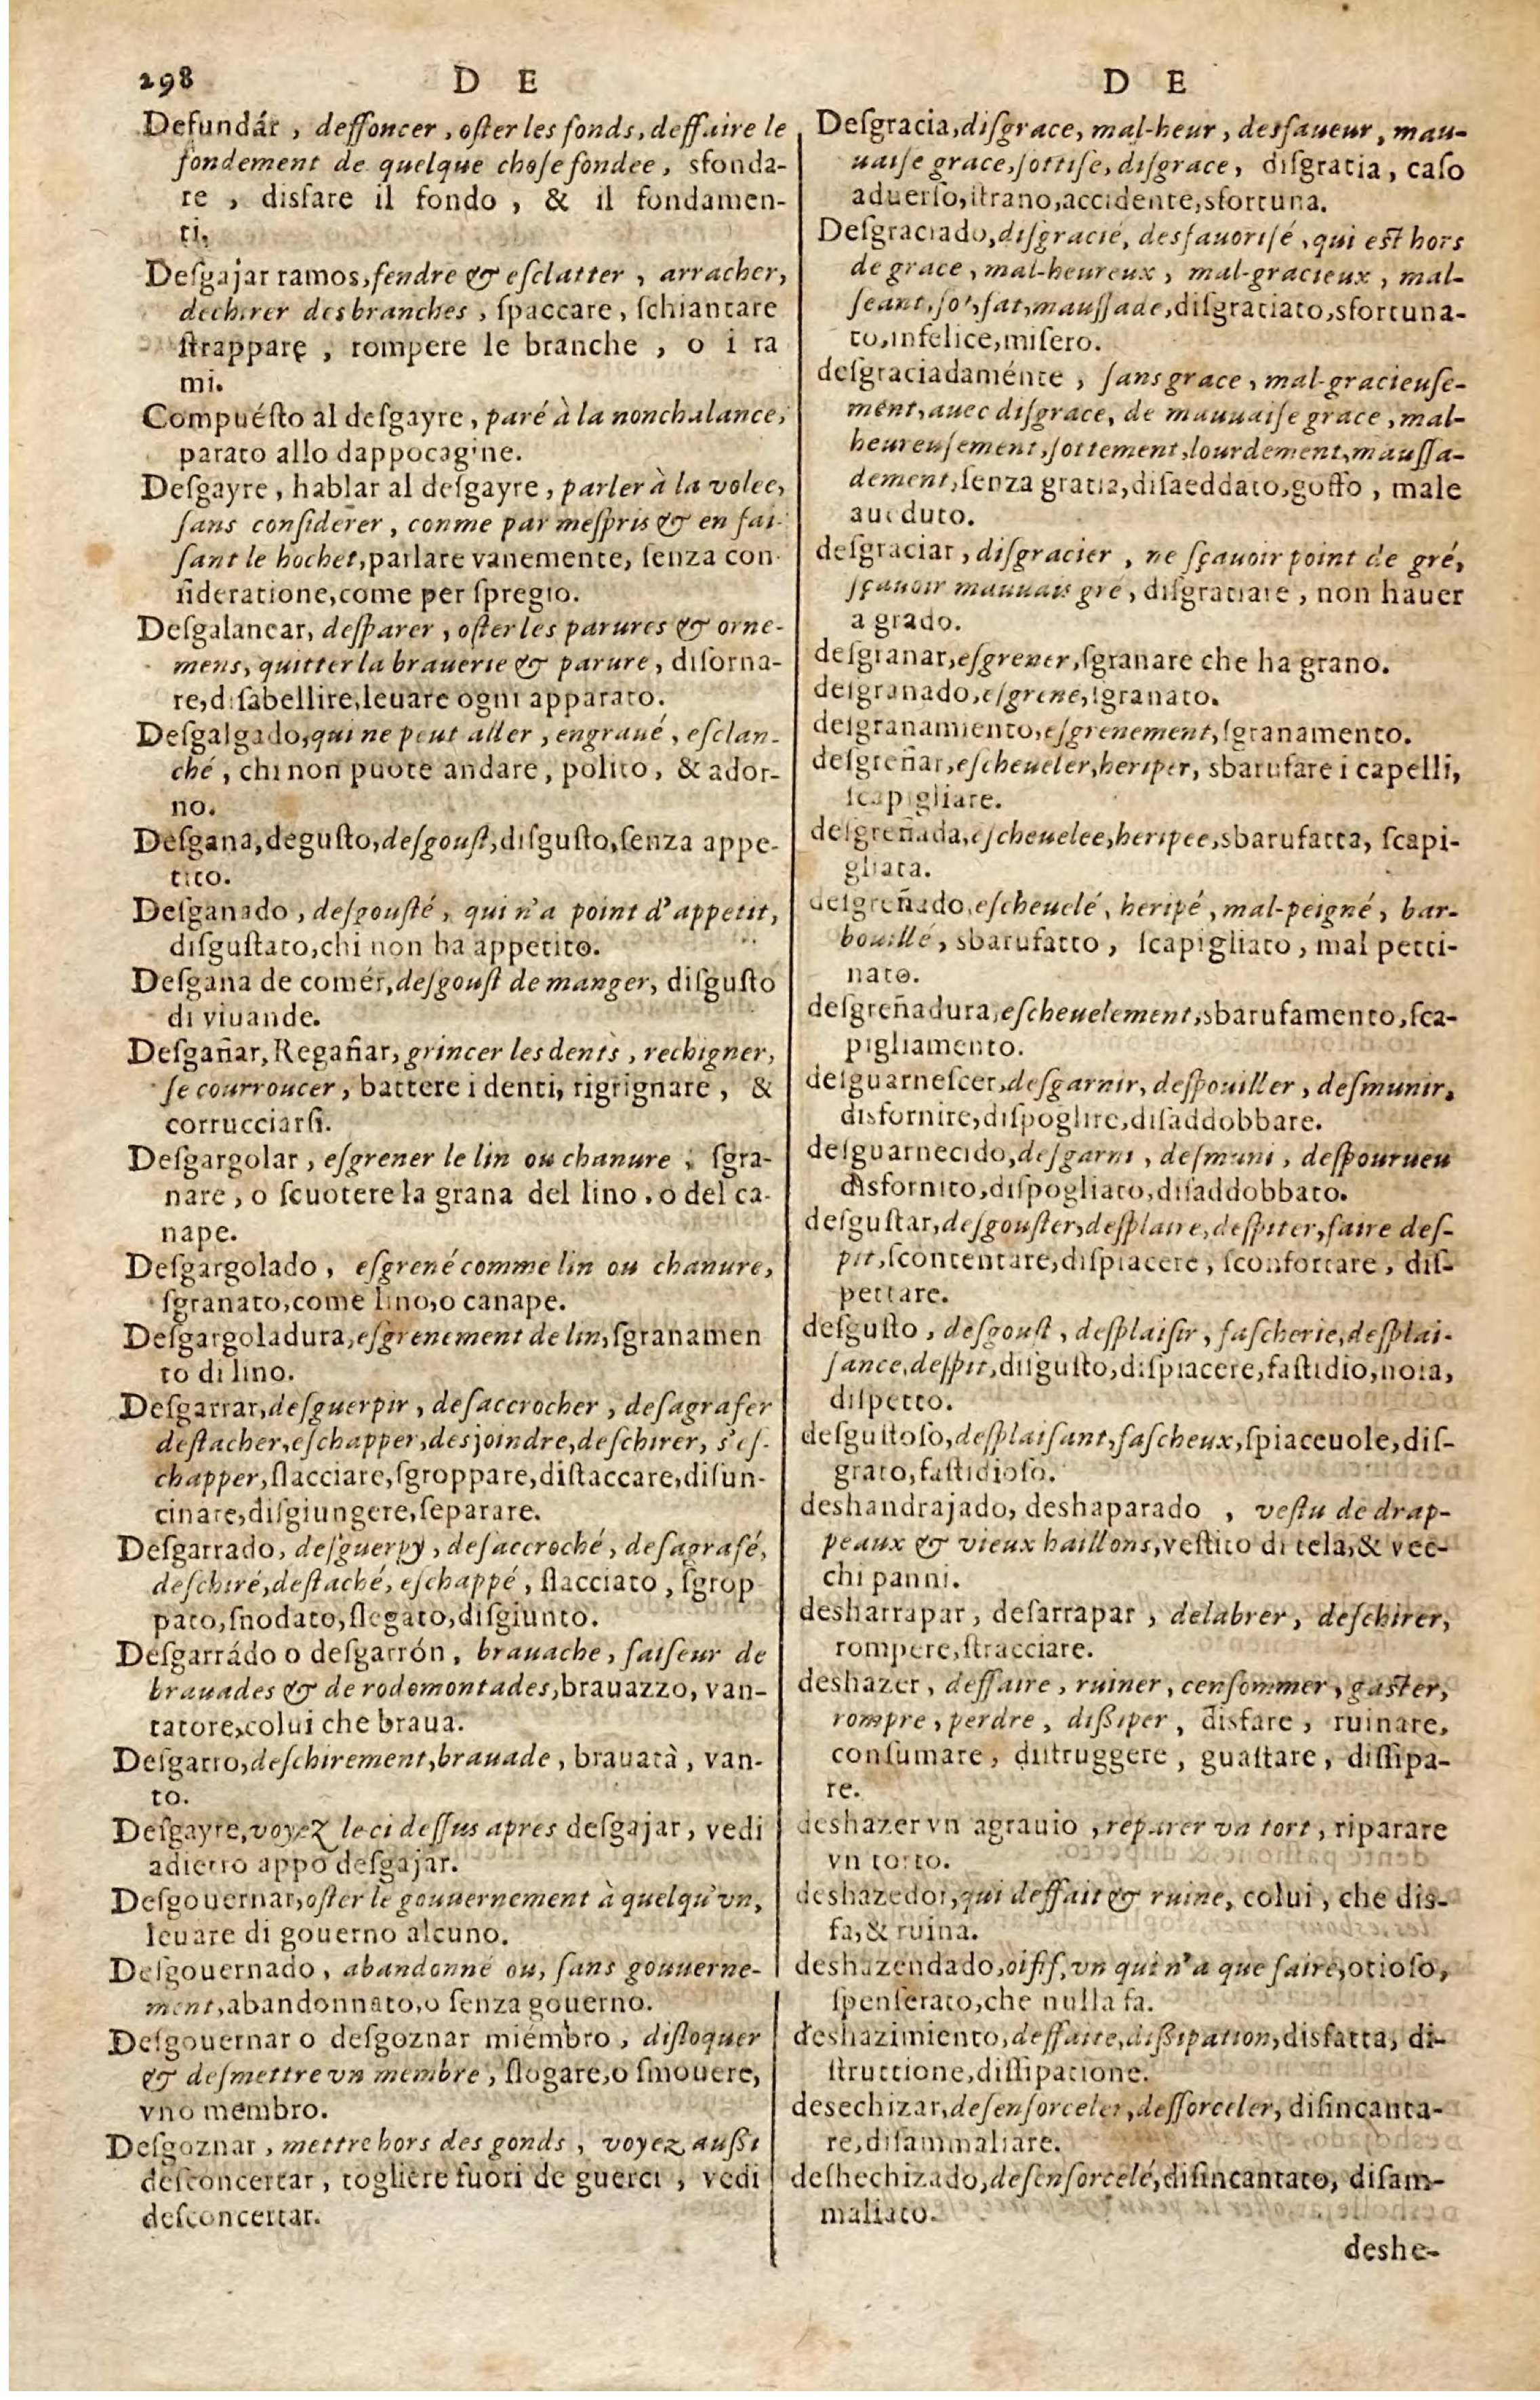 298 D E
Defundár, deffoncer, oster les fonds, deffaire le
fondement de quelque chose fondee, sfonda-
re, disfare il fondo, & il fondamen-
ti,
Deſgajar ramos, fendre & eſclatter, arracher,
dechirer des branches, ſpaccare, ſchiantare
ſtrappare, rompere le branche, o i ra
mi.
Compuéſto al deſgayre, paré à la nonchalance,
parato allo dappocagine.
Deſgayre, hablar al deſgayre, parler à la volee,
ſans conſiderer, conme par meſpris & en fai-
ſant le hochet, parlare vanemente, ſenza con-
ſideratione, come per ſpregio.
Deſgalanear, deſparer, oſter les parures & orne-
mens, quitter la brauerie & parure, diſorna-
re, diſabellire, leuare ogni apparato.
Deſgalgado, qui ne peut aller, engraué, eſclan-
ché, chi non puote andare, polito, & ador-
no.
Deſgana, deguſto, deſgouſt, diſguſto, ſenza appe-
tito.
Deſganado, deſgouſté, qui n'a point d'appetit,
diſguſtato, chi non ha appetito.
Deſgana de comér, deſgouſt de manger, diſguſto
di viuande.
Deſgañar, Regañar, grincer les dents, rechigner,
ſe courroucer, battere i denti, rigrignare, &
corrucciarſi.
Deſgargolar, eſgrener le lin ou chanure, ſgra-
nare, o ſcuotere la grana del lino, o del ca-
nape.
Deſgargolado, eſgrené comme lin ou chanure,
ſgranato, come lino, o canape.
Deſgargoladura, eſgrenement de lin, ſgranamen
to di lino.
Deſgarrar, deſguerpir, deſaccrocher, deſagrafer
deſtacher, eſchapper, desjoindre, deſchirer, s'eſ-
chapper, ſlacciare, ſgroppare, diſtaccare, diſun-
cinare, diſgiungere, ſeparare.
Deſgarrado, deſguerpy, deſaccroché, deſagrafé,
deſchiré, deſtaché, eſchappé, ſlacciato, ſgrop
pato, ſnodato, ſlegato, diſgiunto.
Deſgarrádo o deſgarrón, brauache, faiſeur de
brauades & de rodomontades, brauazzo, van-
tatore, colui che braua.
Deſgarro, deſchirement, brauade, brauatà, van-
to.
Deſgayre, voyez le ci deſſus apres deſgajar, vedi
adietro appo deſgajar.
Deſgouernar, oſter le gouuernement à quelqu'vn,
leuare di gouerno alcuno.
Deſgouernado, abandonné ou, ſans gouuerne-
ment, abandonnato, o ſenza gouerno.
Deſgouernar o deſgoznar miémbro, diſloquer
& deſmettre vn membre, ſlogare, o ſmouere,
vno membro.
Deſgoznar, mettre hors des gonds, voyez auſſi
deſconcertar, togliere fuori de guerci, vedi
deſconcertar.
D E
Deſgracia, diſgrace, mal-heur, desfaueur, mau-
uaiſe grace, ſottiſe, diſgrace, diſgratia, caſo
aduerſo, ſtrano, accidente, sfortuna.
Deſgraciado, diſgracié, desfauoriſé, qui eſt hors
de grace, mal-heureux, mal-gracieux, mal-
ſeant, ſot, fat, mauſſade, diſgratiato, sfortuna-
to, infelice, miſero.
deſgraciadaménte, ſans grace, mal-gracieuſe-
ment, auec diſgrace, de mauuaiſe grace, mal-
heureuſement, ſottement, lourdement, mauſſa-
dement, ſenza gratia, diſaeddato, goffo, male
aueduto.
deſgraciar, diſgracier, ne ſçauoir point de gré,
ſçauoir mauuais gré, diſgratiare, non hauer
a grado.
deſgranar, eſgrener, ſgranare che ha grano.
deſgranado, eſgrené, ſgranato.
deſgranamiento, eſgrenement, ſgranamento.
deſgreñar, eſcheueler, heriper, sbarufare i capelli,
ſcapigliare.
deſgreñada, eſcheuelee, heripee, sbarufatta, ſcapi-
gliata.
deſgreñado, eſcheuelé, heripé, mal-peigné, bar-
bouillé, sbarufatto, ſcapigliato, mal petti-
nato.
deſgreñadura, eſcheuelement, sbarufamento, ſca-
pigliamento.
deſguarneſcer, deſgarnir, deſpouiller, deſmunir,
disfornire, diſpoglire, diſaddobbare.
deſguarnecido, deſgarni, deſmuni, deſpourueu
disfornito, diſpogliato, diſaddobbato.
deſguſtar, deſgouſter, deſplaire, deſpiter, faire deſ-
pit, ſcontentare, diſpiacere, ſconfortare, diſ-
pettare.
deſguſto, deſgouſt, deſplaiſir, faſcherie, deſplai-
ſance, deſpit, diſguſto, diſpiacere, faſtidio, noia,
diſpetto.
deſguſtoſo, deſplaiſant, faſcheux, ſpiaceuole, diſ-
grato, faſtidioſo.
deshandrajado, deshaparado, veſtu de drap-
peaux & vieux haillons, veſtito di tela, & vec-
chi panni.
desharrapar, deſarrapar, delabrer, deſchirer,
rompere, ſtracciare.
deshazer, deffaire, ruiner, conſommer, gaſter,
rompre, perdre, diſſiper, disfare, ruinare,
conſumare, diſtruggere, guaſtare, diſſipa-
re.
deshazer vn agrauio, reparer vn tort, riparare
vn torto.
deshazedor, qui deffait & ruine, colui, che dis-
fa, & ruina.
deshazendado, oiſif, vn qui n'a que faire, otioſo,
ſpenſerato, che nulla fa.
deshazimiento, deffaite, diſſipation, disfatta, di-
ſtruttione, diſſipatione.
desechizar, deſenſorceler, deſſorceler, diſincanta-
re, diſammaliare.
deshechizado, deſenſorcelé, diſincantato, diſam-
maliato.
deshe-